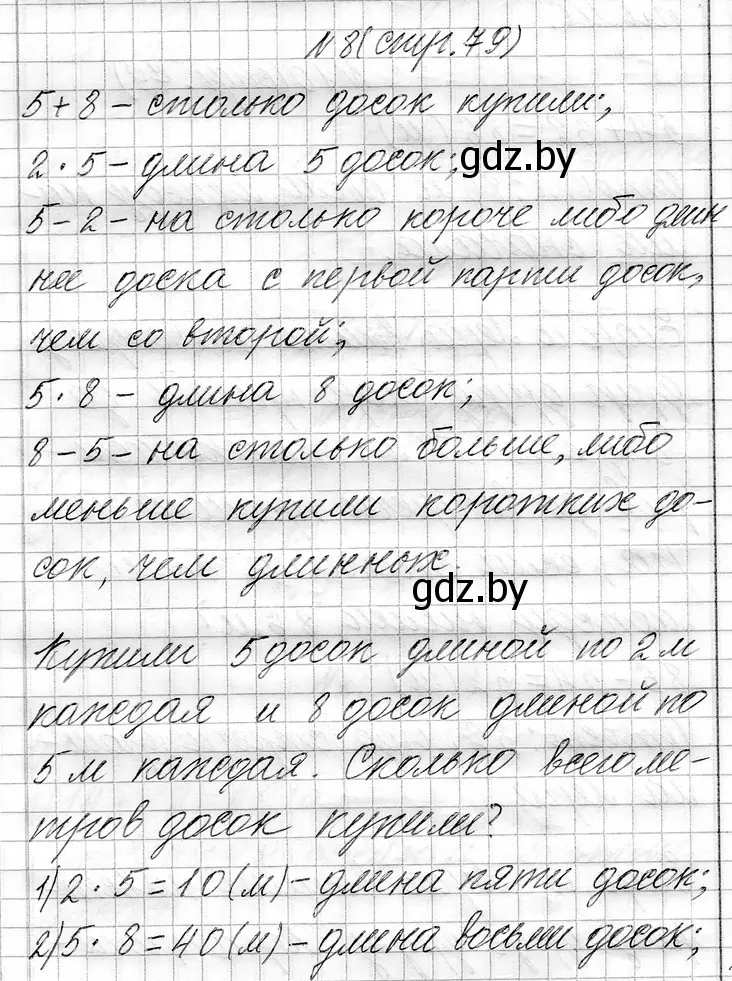 N 8 (стр. 79)
5 + 8 – столько досок купили;
2 · 5 – длина 5 досок;
gdz.by
5 – 2 – на столько короче либо длин
нее доска с первой партии досок,
чем со второй;
5 · 8 – длина 8 досок;
8 – 5 – на столько больше, либо
меньше купили коротких до-
сок, чем длинных
gdz.by
Купили 5 досок длиной по 2 м
каждая и 8 досок длиной по
5 м каждая. Сколько всего ме-
тров досок купили?
1) 2 · 5 = 10 (м) – длина пяти досок;
2) 5 · 8 = 40 (м) – длина восьми досок;